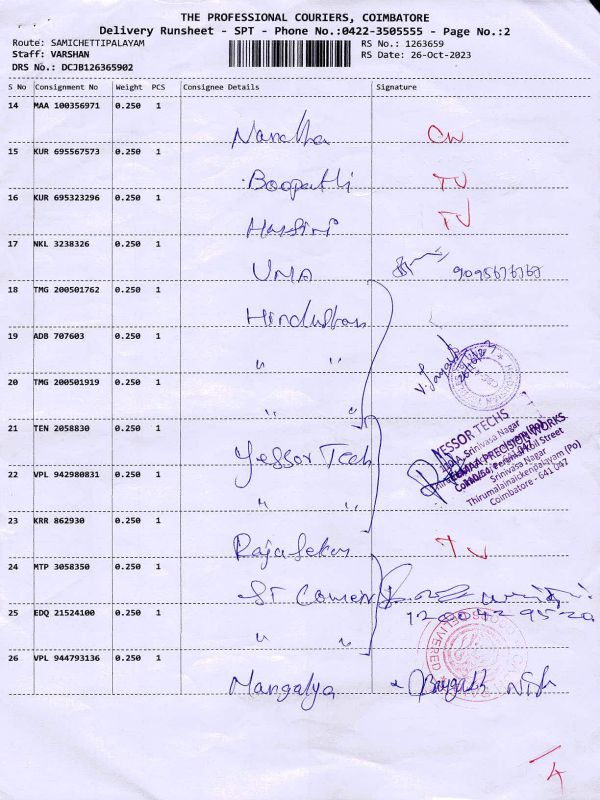 THE PROFESSIONAL COURIERS, COIMBATORE
Delivery Runsheet - SPT - Phone No.:0422-3505555 - Page No.:2
Route: SAMICHETTIPALAYAM RS No.: 1263659
Staff: VARSHAN RS Date: 26-Oct-2023
DRS No.: DCJB126365902
S No Consignment No Weight PCS Consignee Details Signature
14 MAA 100356971 0.250 1
Nandha
15 KUR 695567573 0.250 1
Boopathi TV
16 KUR 695323296 0.250 1
Hassini TV
17 NKL 3238326 0.250 1
UMA
18 TMG 200501762 0.250 1
Hindustan
19 ADB 707603 0.250 1
" "
20 TMG 200501919 0.250 1
" "
21 TEN 2058830 0.250 1
NESSOR TECHS
Srinivasa Nagar
PRECISION WORKS
Street
Yessor Tech
Srinivasa Nagar
22 VPL 942980831 0.250 1
Thirumalainaickenpalayam (Po)
Coimbatore - 641 047
" "
23 KRR 862930 0.250 1
Rajasekar TV
24 MTP 3058350 0.250 1
ST Comen
25 EDQ 21524100 0.250 1
" "
DELIVERED
26 VPL 944793136 0.250 1
Mangalya
4